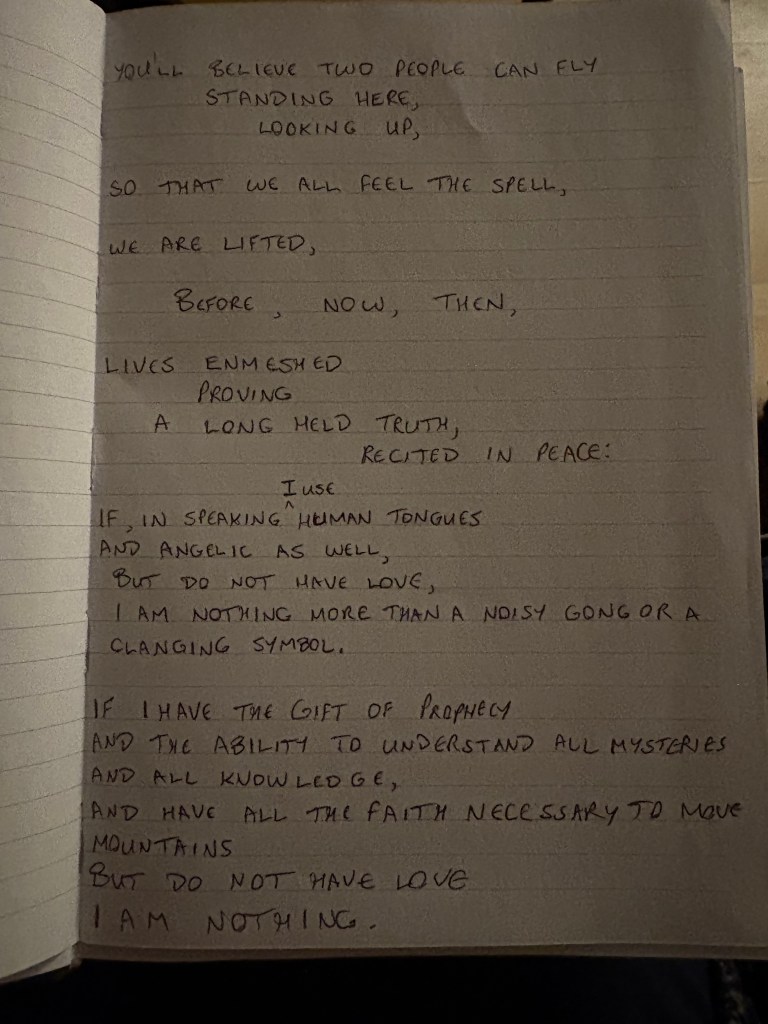 YOU'LL BELIEVE TWO PEOPLE CAN FLY
STANDING HERE,
LOOKING UP,
SO THAT WE ALL FEEL THE SPELL,
WE ARE LIFTED,
BEFORE, NOW, THEN,
LIVES ENMESHED
PROVING
A LONG HELD TRUTH,
RECITED IN PEACE:
I USE
IF, IN SPEAKING ^ HUMAN TONGUES
AND ANGELIC AS WELL,
BUT DO NOT HAVE LOVE,
I AM NOTHING MORE THAN A NOISY GONG OR A
CLANGING SYMBOL.
IF I HAVE THE GIFT OF PROPHECY
AND THE ABILITY TO UNDERSTAND ALL MYSTERIES
AND ALL KNOWLEDGE,
AND HAVE ALL THE FAITH NECESSARY TO MOVE
MOUNTAINS
BUT DO NOT HAVE LOVE
I AM NOTHING.